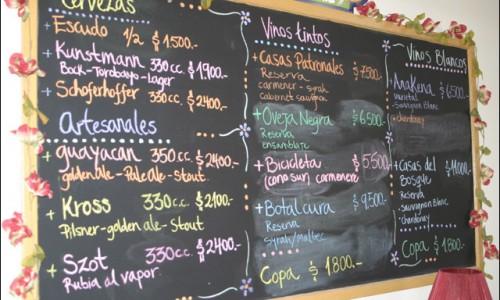 Cervezas
+ Escudo 1/2 $ 1.500.-
+ Kunstmann 330cc. $ 1,900.-
Bock-Torobayo-Lager
+ Schoferhoffer 330cc. $ 2,400-
Artesanales
+ guayacan 350cc. $ 2400-
golden ale - Pale Ale - Stout
+ Kross 330cc. $ 2100-
Pilsner-golden ale-Stout
+ Szot 330cc. $ 2400.-
Rubia al vapor
Vinos tintos
+ Casas Patronales $ 7.500.-
Reserva
carmener - syrah
cabernet sauvign
+ Oveja Negra $ 6.500.-
Reserva
ensamblaje
+ Bicicleta $ 5,500
(cono sur) carmenere
+ Botalcura $ 9,500-
Reserva
syrah/malbec
Copa $ 1.800.-
Vinos Blancos
+ Anakena $ 6.500
varietal
-Sauvignon Blanc
+ chardonay
+ Casas del $ 11.000-
Bosque
Reserva
-Sauvignon Blanc
-Chardonay
Copa $ 1.800-